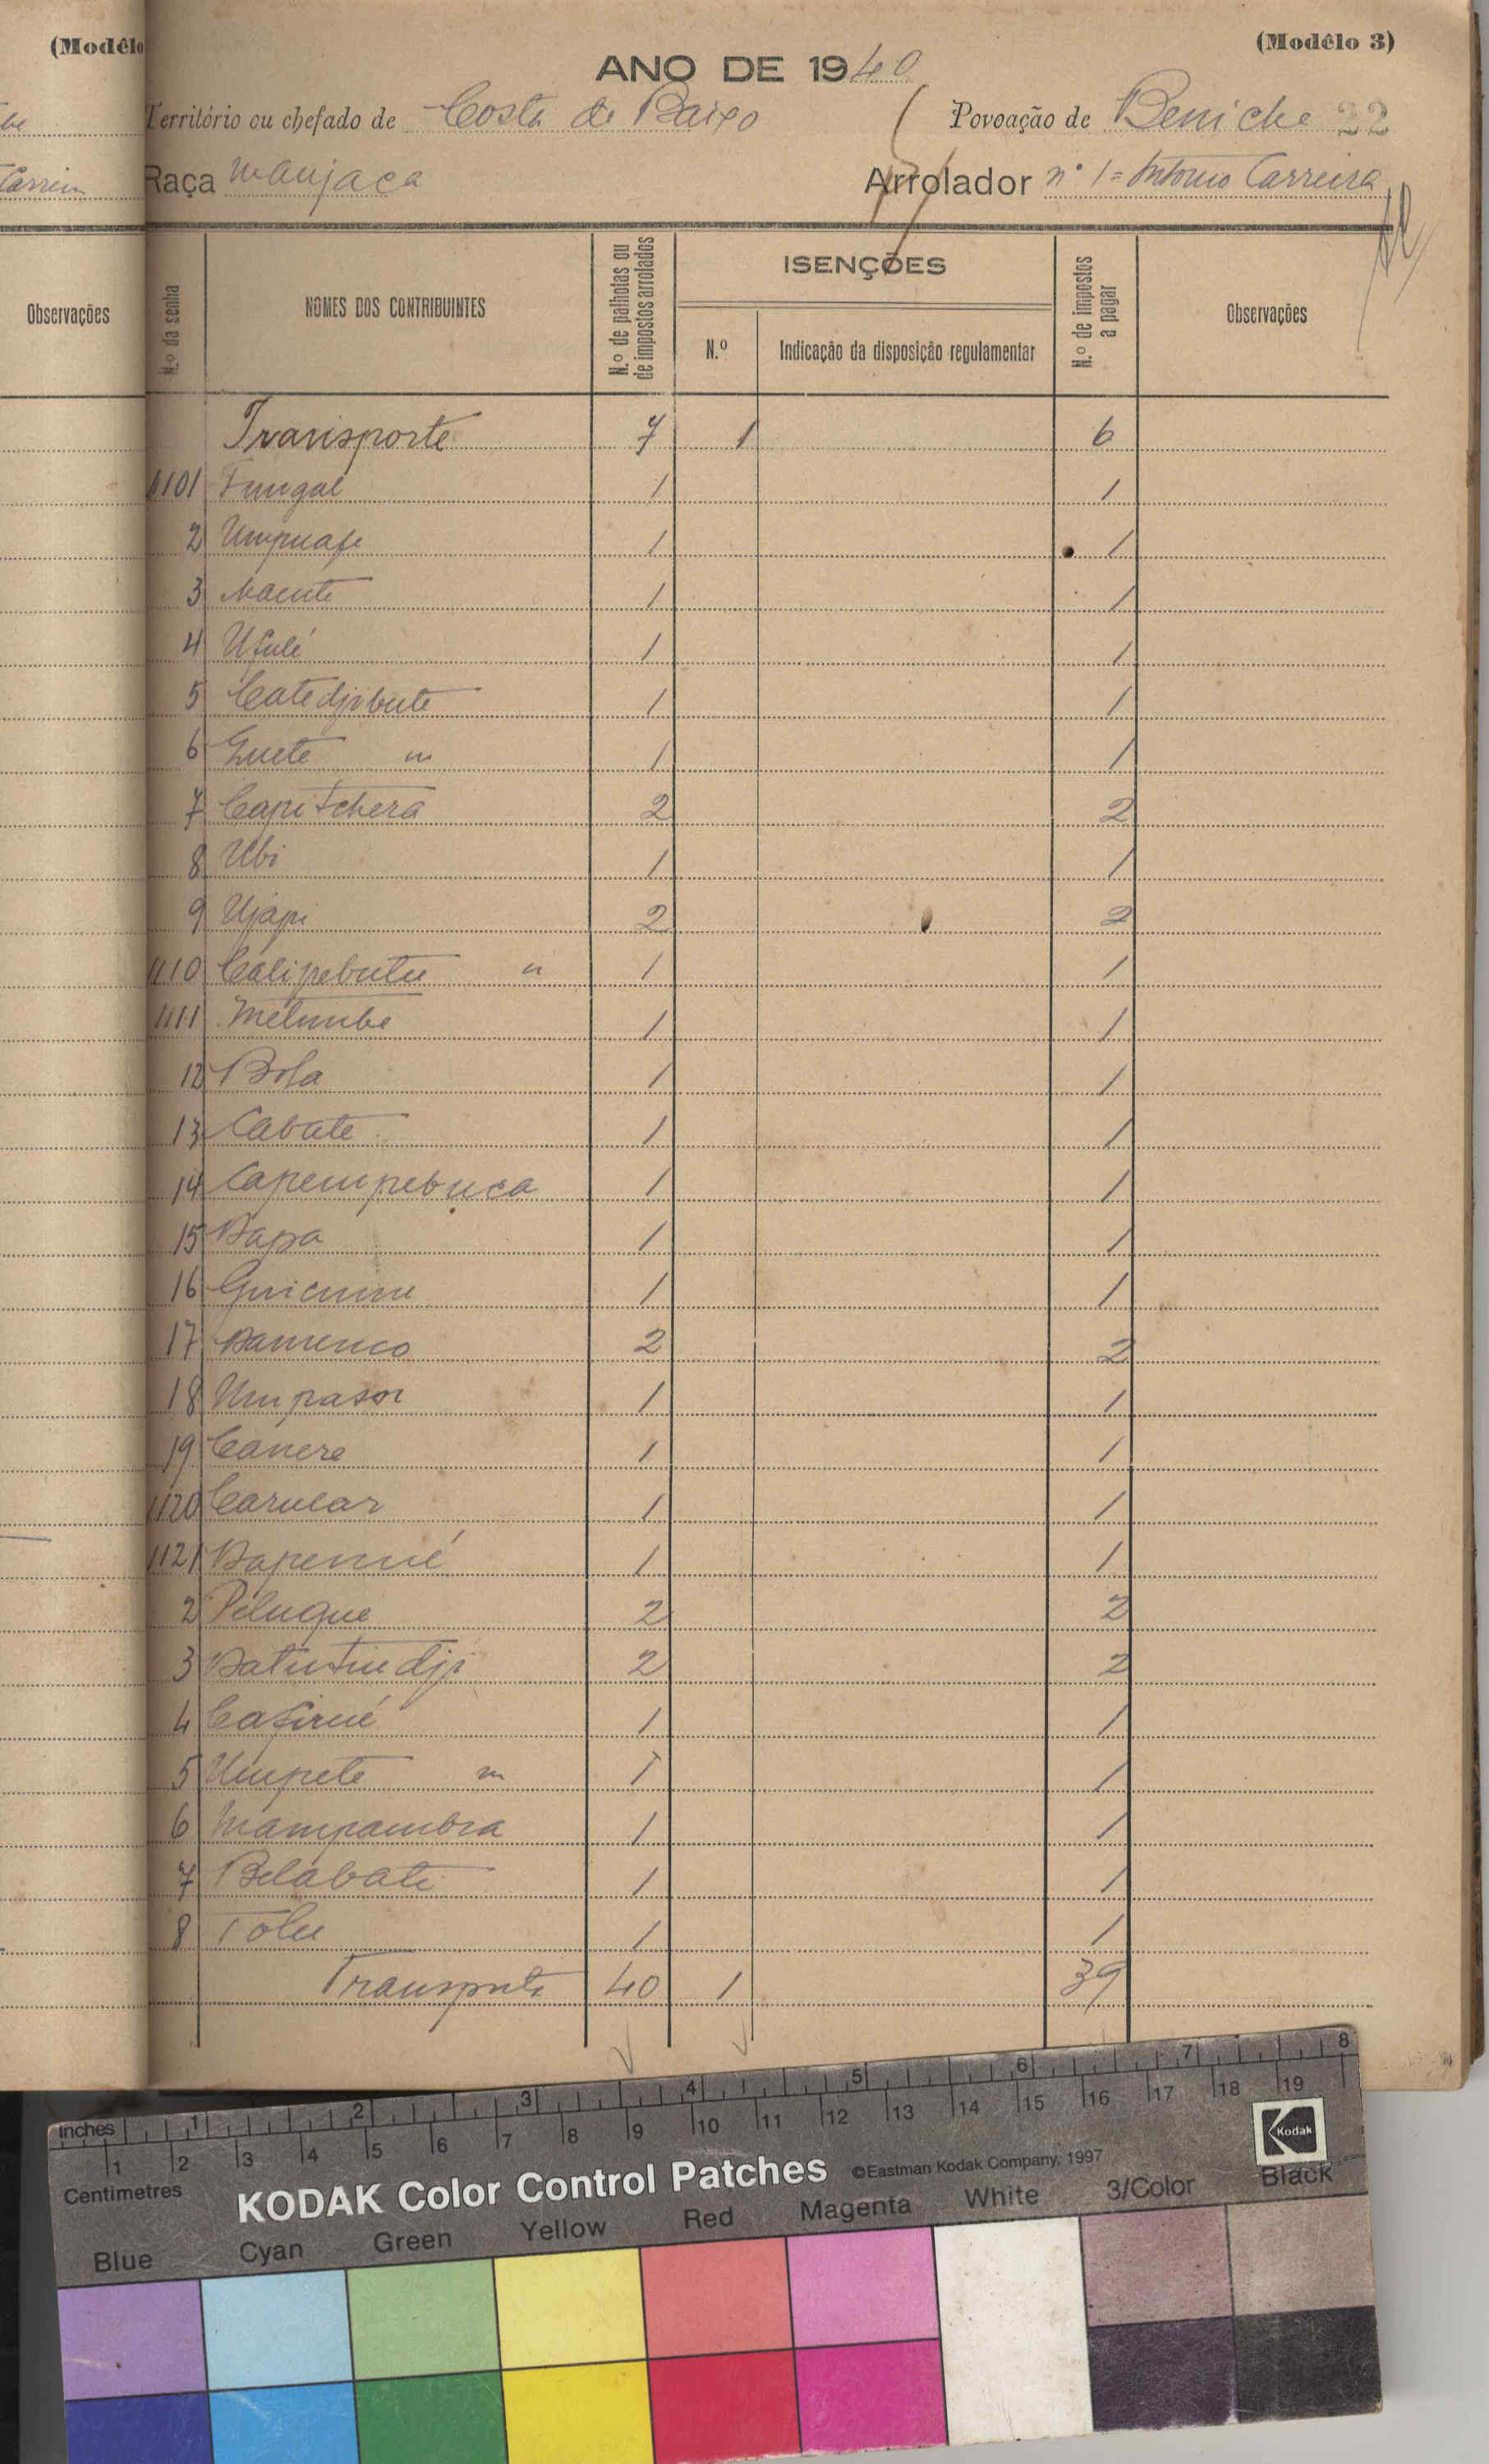 (Modêlo
(Modêlo 3)
ANO DE 1940
Território ou chefado de Costa de Baixo Povoação de Beniche 22
Raça Manjaca Arrolador nº 1 = António Carreira
Observações
N.º da senha
NOMES DOS CONTRIBUINTES
N.º de palhotas ou de impostos arrolados
ISENÇÕES
N.º
Indicação da disposição regulamentar
N.º de impostos a pagar
Observações
Transporte 7 1 6
1101 Fungal 1 1
2 Umpuafe 1 1
3 Naente 1 1
4 Ufulé 1 1
5 Catedjibute 1 1
6 Guete m 1 1
7 Capitchera 2 2
8 Ubi 1 1
9 Ujapi 2 2
1110 Calipebutu " 1 1
1111 Melumbe 1 1
12 Bola 1 1
13 Cabate 1 1
14 Capempebuca 1 1
15 Dapa 1 1
16 Guicumu 1 1
17 Damenco 2 2
18 Umpasor 1 1
19 Canere 1 1
1120 Carular 1 1
1121 Dapenué 1 1
2 Pelugue 2 2
3 Datutiudji 2 2
4 Cafirué 1 1
5 Umpete m 1 1
6 Mampambra 1 1
7 Belabate 1 1
8 Tolu 1 1
Transporte 40 1 39
inches 1 2 3 4 5 6 7 8
1 2 3 4 5 6 7 8 9 10 11 12 13 14 15 16 17 18 19
Centimetres
KODAK Color Control Patches ©Eastman Kodak Company, 1997
Kodak
Blue Cyan Green Yellow Red Magenta White 3/Color Black